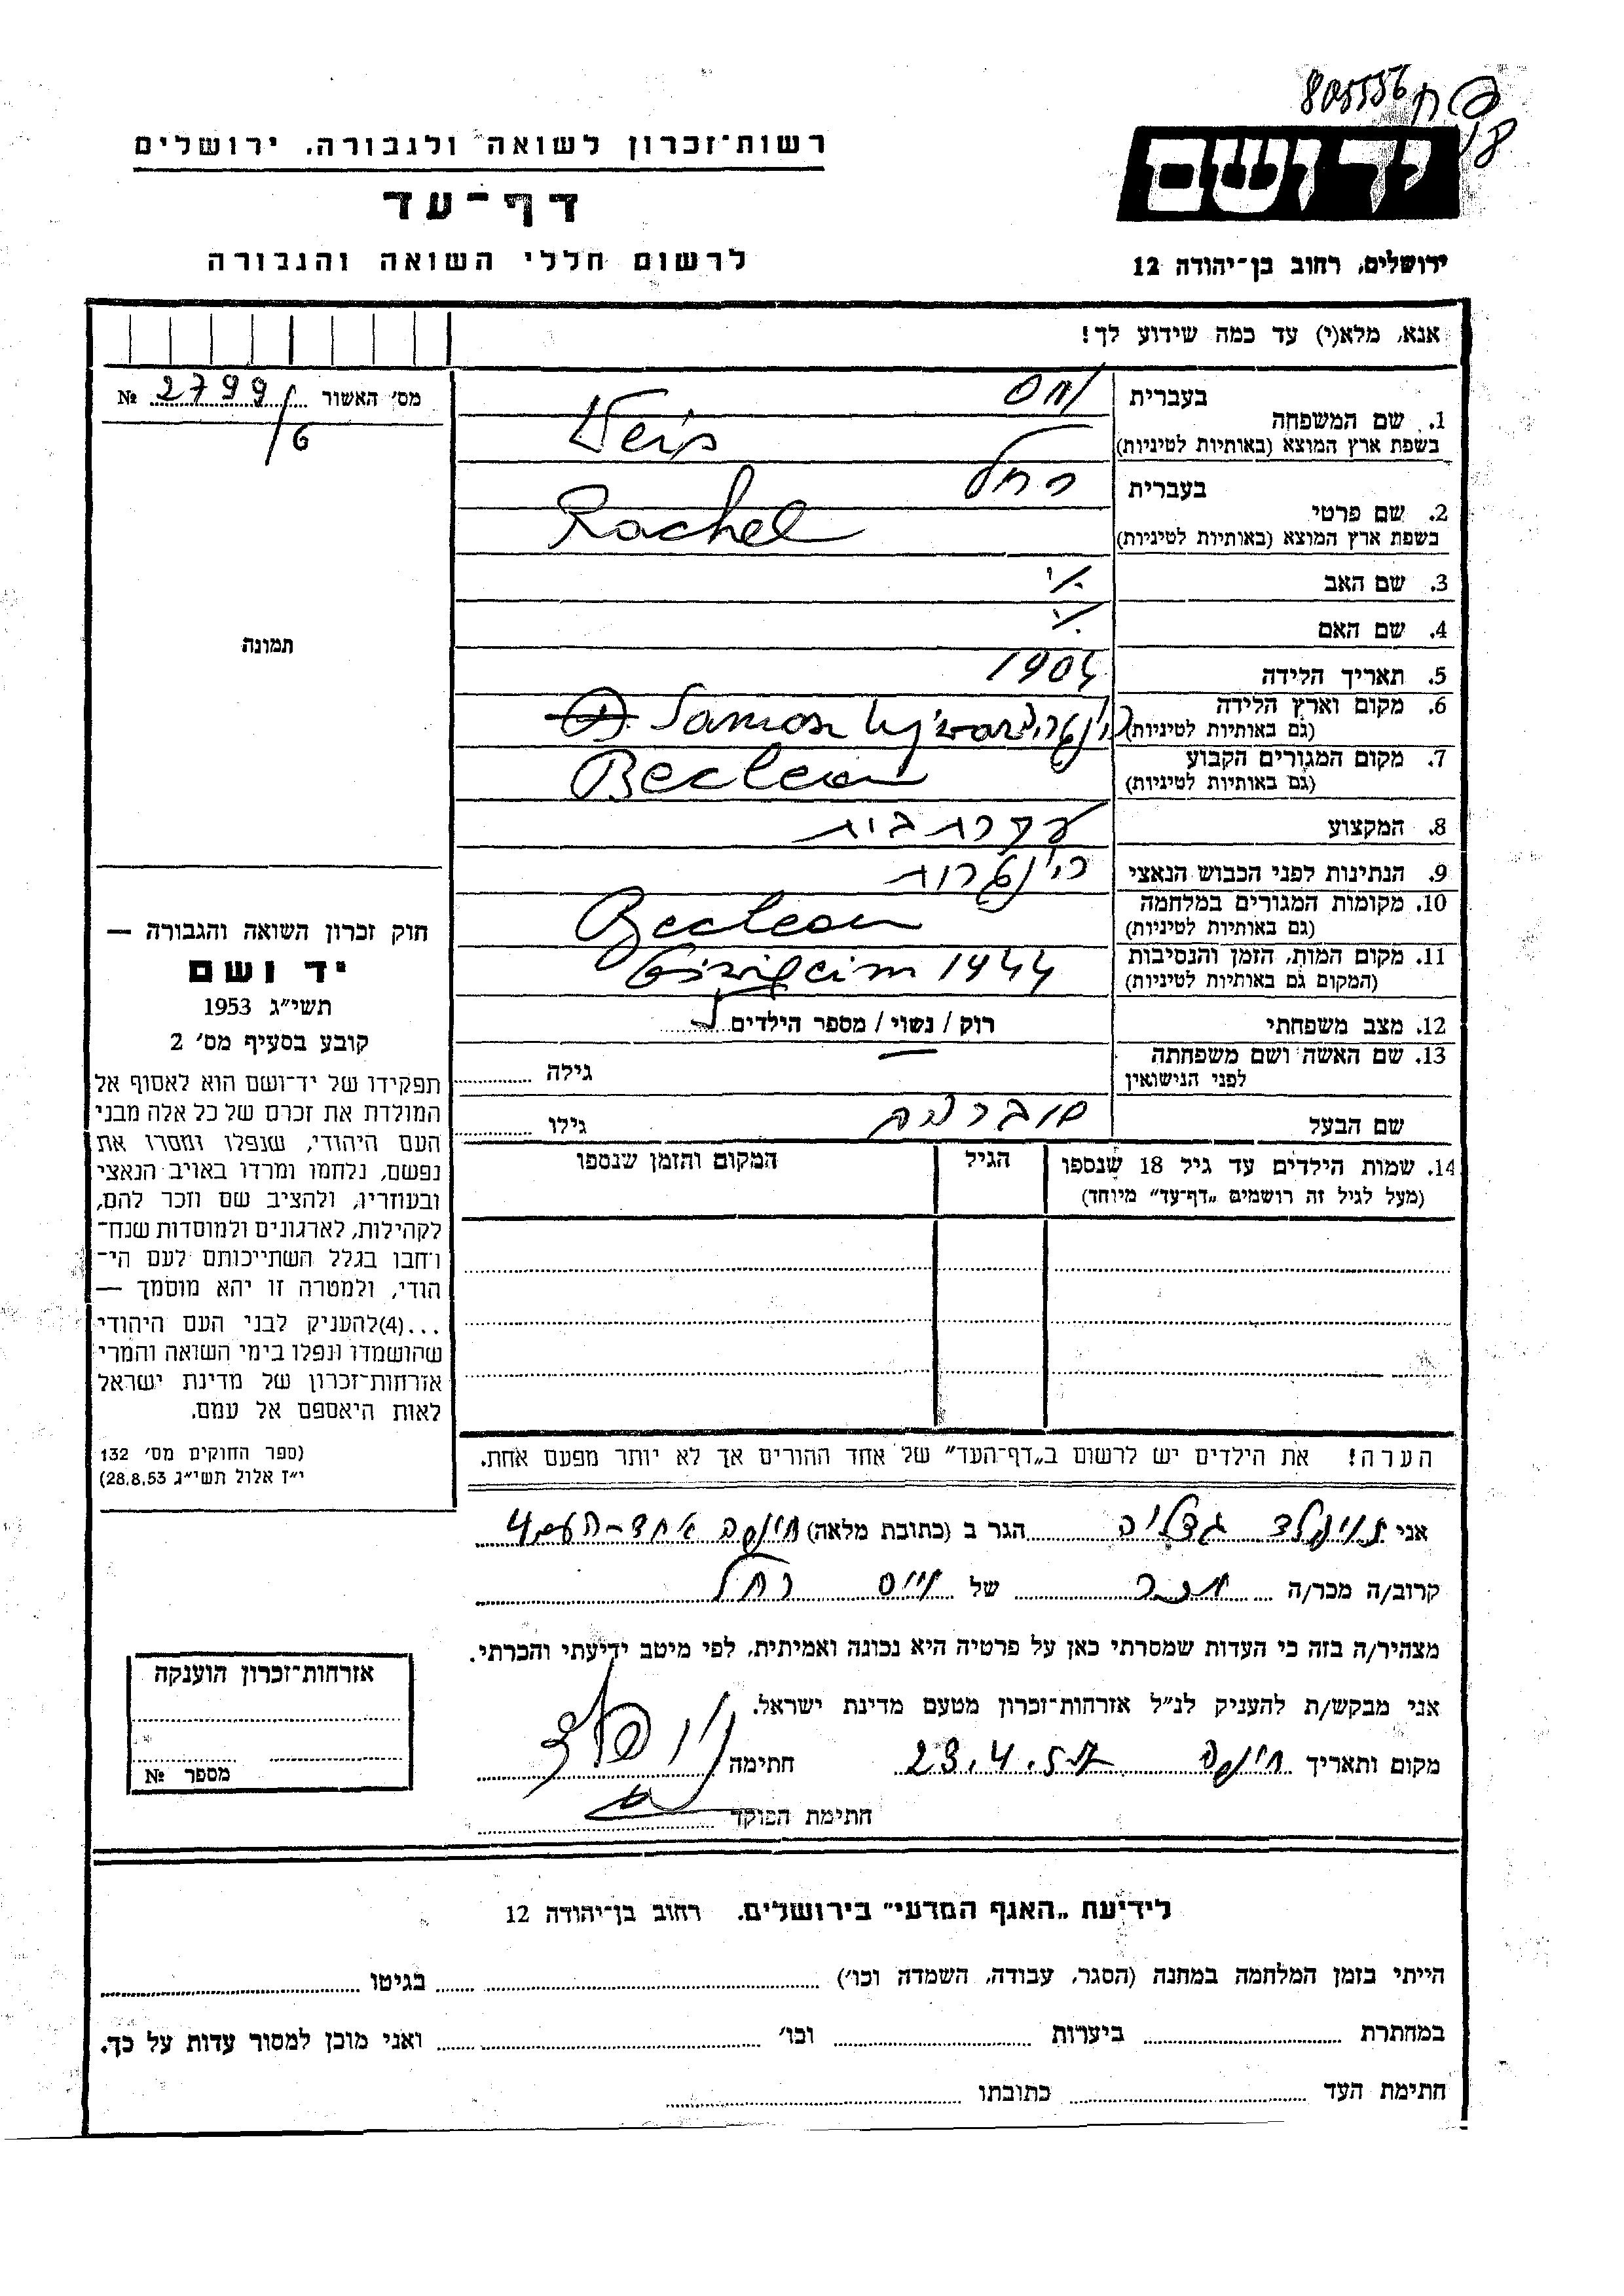 805556
רשות־זכרון לשואה ולגבורה, ירושלים
דף־עד
לרשום חללי השואה והגבורה
יד ושם
ירושלים, רחוב בן־יהודה 12
אנא, מלא(י) עד כמה שידוע לך!
מס׳ האשור 2799/6 №
תמונה
1. שם המשפחה
בעברית ווייס
בשפת ארץ המוצא (באותיות לטיניות) Weis
2. שם פרטי
בעברית רחל
בשפת ארץ המוצא (באותיות לטיניות) Rachel
3. שם האב
4. שם האם
5. תאריך הלידה 1904
6. מקום וארץ הלידה
(גם באותיות לטיניות)
7. מקום המגורים הקבוע
(גם באותיות לטיניות) Beclean
8. המקצוע עקרת בית
9. הנתינות לפני הכבוש הנאצי
10. מקומות המגורים במלחמה
(גם באותיות לטיניות) Beclean
11. מקום המות, הזמן והנסיבות
(המקום גם באותיות לטיניות) 1944
12. מצב משפחתי רוק / נשוי / מספר הילדים
13. שם האשה ושם משפחתה
לפני הנישואין גילה
שם הבעל גילו
14. שמות הילדים עד גיל 18 שנספו
(מעל לגיל זה רושמים „דף־עד״ מיוחד)
הגיל
המקום והזמן שנספו
חוק זכרון השואה והגבורה —
יד ושם
תשי״ג 1953
קובע בסעיף מס׳ 2
תפקידו של יד־ושם הוא לאסוף אל
המולדת את זכרם של כל אלה מבני
העם היהודי, שנפלו ומסרו את
נפשם, נלחמו ומרדו באויב הנאצי
ובעוזריו, ולהציב שם וזכר להם,
לקהילות, לארגונים ולמוסדות שנח־
רחבו בגלל השתייכותם לעם הי־
הודי, ולמטרה זו יהא מוסמך —
...(4)להעניק לבני העם היהודי
שהושמדו ונפלו בימי השואה והמרי
אזרחות־זכרון של מדינת ישראל
לאות היאספם אל עמם.
(ספר החוקים מס׳ 132
י״ז אלול תשי״ג 28.8.53)
הערה! את הילדים יש לרשום ב„דף־העד״ של אחד ההורים אך לא יותר מפעם אחת.
אני גדליה הגר ב (כתובת מלאה) חיפה אחד־העם 4
קרוב/ה מכר/ה מכר של ווייס רחל
מצהיר/ה בזה כי העדות שמסרתי כאן על פרטיה היא נכונה ואמיתית, לפי מיטב ידיעתי והכרתי.
אני מבקש/ת להעניק לנ״ל אזרחות־זכרון מטעם מדינת ישראל.
מקום ותאריך חיפה 23.4.57 חתימה
חתימת הפוקד
אזרחות־זכרון הוענקה
מספר №
לידיעת „האגף המדעי״ בירושלים, רחוב בן־יהודה 12
הייתי בזמן המלחמה במחנה (הסגר, עבודה, השמדה וכו׳) בגיטו
במחתרת ביערות וכו׳ ואני מוכן למסור עדות על כך.
חתימת העד כתובתו